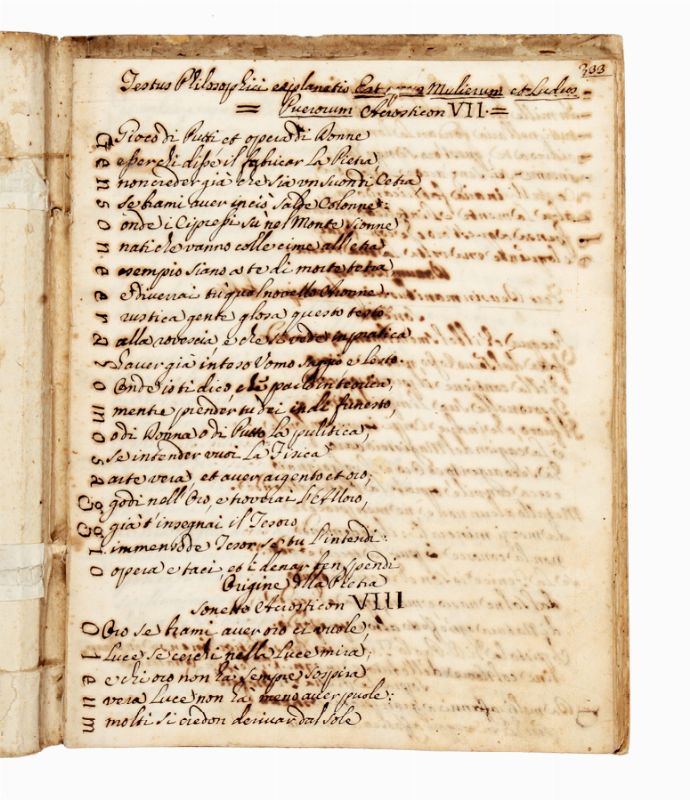 333
Textus Philosophici explanatio Est Mulierum et Ludus
= Puerorum Acrosticon VII. =
Gioco di Putti et opera di Donne
esser chi disse il fabricar la Pietra
non creder già che sia un suon di Cetra
se brami aver incis salde Colonne:
onde i Cipressi sù nel Monte Sionne
nati che vanno colle cime all'etra
esempio siano a te di morte tetra
e diverrai tu qual novello
rustica gente glosa questo testo
alla rovescia, e che si vede in pratica
L'aver già inteso Uomo saggio e lesto
Onde io ti dico che parlo in teorica,
mentre prender tu dei in di funesto,
o di Donna o di Putto la
se intender vuoi la Fisica
arte vera, et aver argento et oro,
godi nell'Oro, e troverai
già t'insegnai il Tesoro
immenso de Tesor, se tu l'intendi:
opera e taci, et i denar ben spendi
Origine della Pietra
Sonetto Acrosticon VIII
Oro se brami aver oro ci vuole;
Luce se cerchi nella Luce mira;
e chi oro non hà sempre sospira
vera Luce non hà meno aver puole:
molti si credon derivar dal Sole
G e n s o n e e r a s o m o s a g g i o
O l e u m